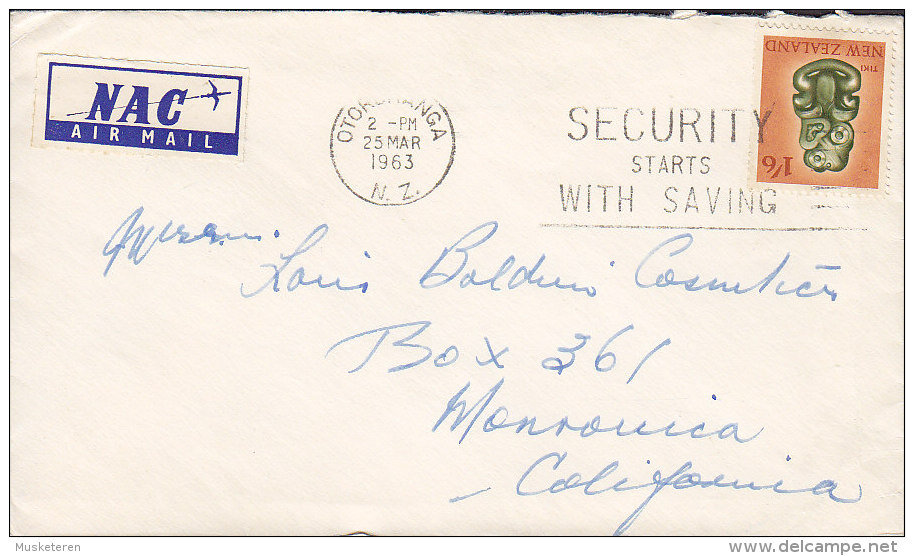 NAC
AIR MAIL
OTOROHANGA
2 -PM
25 MAR
1963
N.Z.
SECURITY
STARTS
WITH SAVING
NEW ZEALAND
TIKI
1/6
Louis Baldwin Cosmetics
Box 361
Monrovia
California
Musketeren
delcampe.net